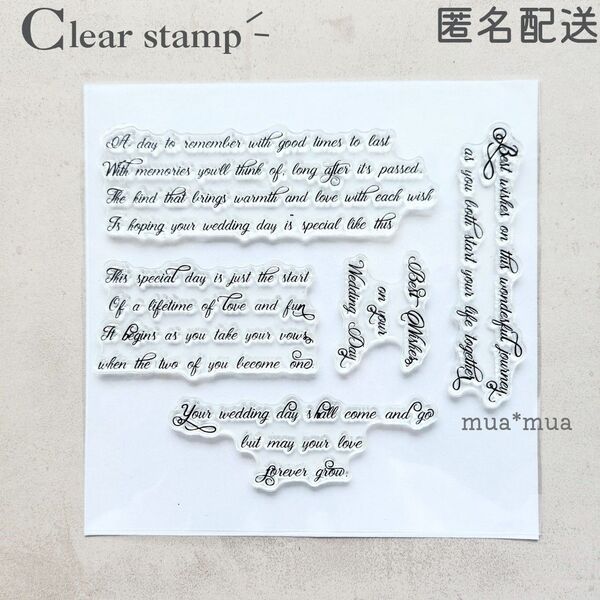 Clear stamp
匿名配送
A day to remember with good times to last
With memories you'll think of, long after it's passed.
The kind that brings warmth and love with each wish
Is hoping your wedding day is special like this
This special day is just the start
Of a lifetime of love and fun
It begins as you take your vows
when the two of you become one
Best Wishes
on your
Wedding Day
Best wishes on this wonderful journey
as you both start your life together
Your wedding day shall come and go
but may your love
forever grow.
mua*mua